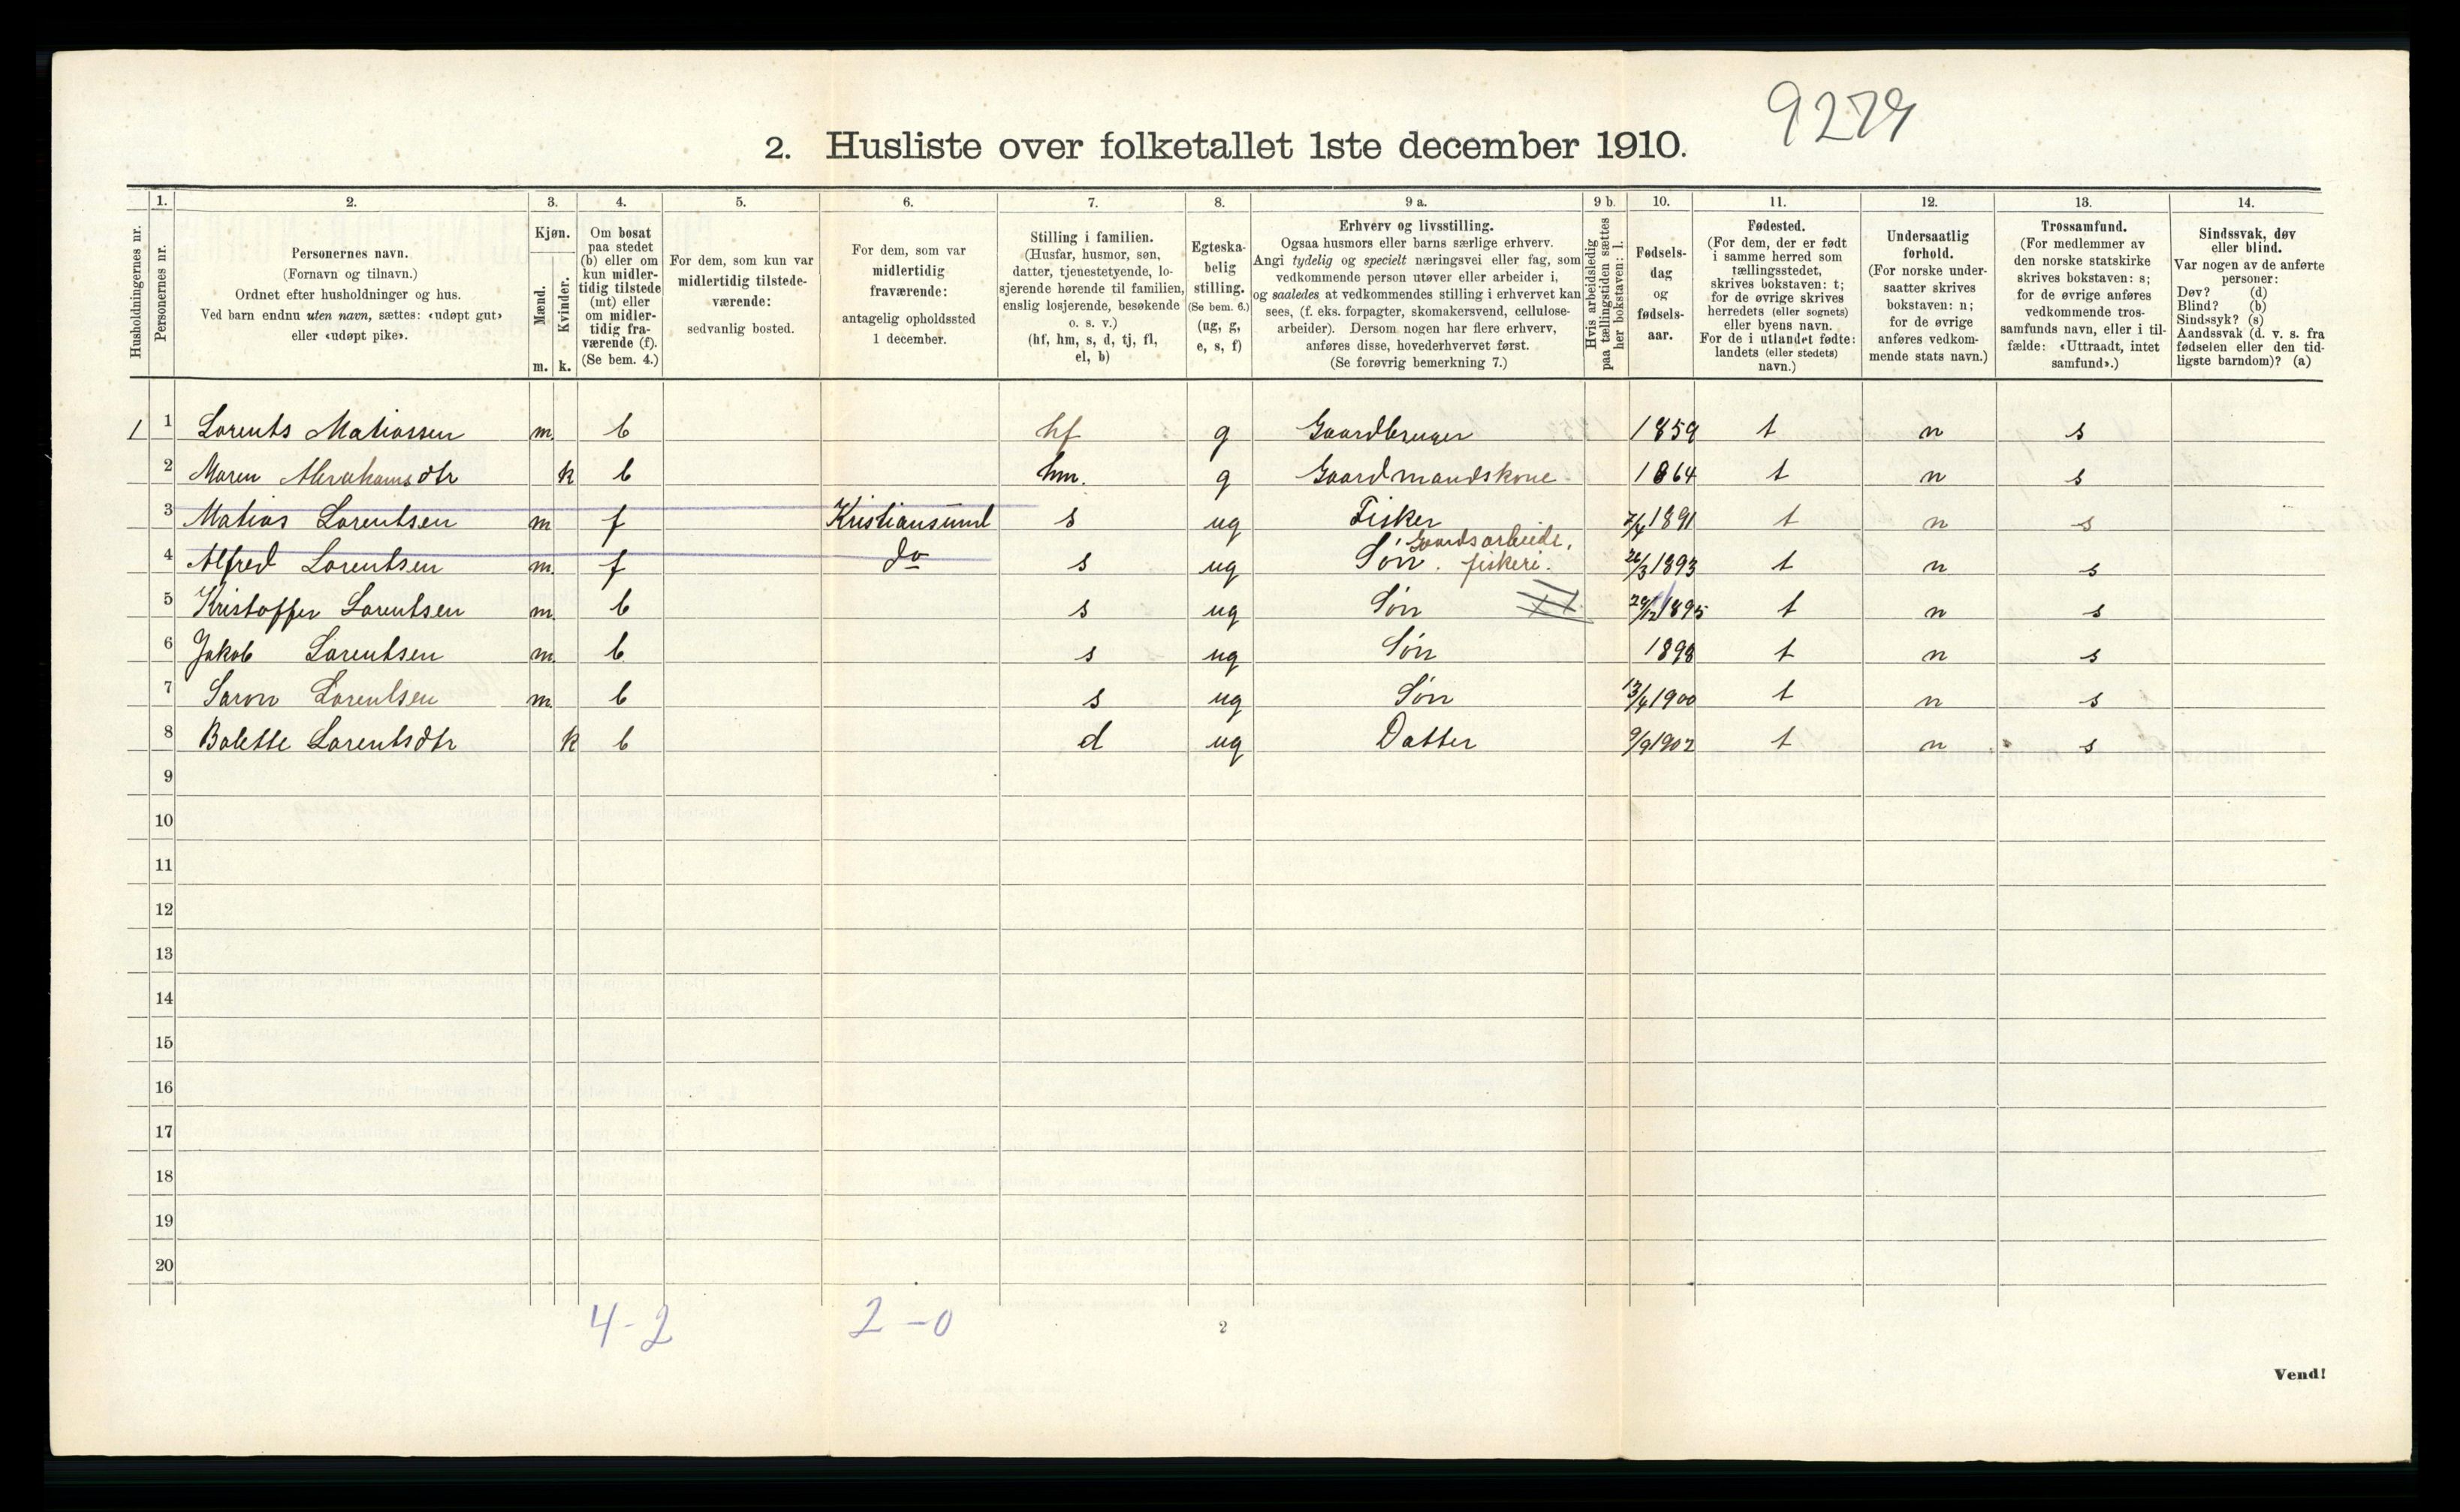 9279
2. Husliste over folketallet 1ste december 1910.
Husholdningernes nr.
1.
Personernes nr.
2.
Personernes navn.
(Fornavn og tilnavn.)
Ordnet efter husholdninger og hus.
Ved barn endnu uten navn, sættes: «udøpt gut»
eller «udøpt pike».
3.
Kjøn.
Mænd.
Kvinder.
m. k.
4.
Om bosat
paa stedet
(b) eller om
kun midler-
tidig tilstede
(mt) eller
om midler-
tidig fra-
værende (f).
(Se bem. 4.)
5.
For dem, som kun var
midlertidig tilstede-
værende:
sedvanlig bosted.
6.
For dem, som var
midlertidig
fraværende:
antagelig opholdssted
1 december.
7.
Stilling i familien.
(Husfar, husmor, søn,
datter, tjenestetyende, lo-
sjerende hørende til familien,
enslig losjerende, besøkende
o. s. v.)
(hf, hm, s, d, tj, fl,
el, b)
8.
Egteska-
belig
stilling.
(Se bem. 6.)
(ug, g,
e, s, f)
9 a.
Erhverv og livsstilling.
Ogsaa husmors eller barns særlige erhverv.
Angi tydelig og specielt næringsvei eller fag, som
vedkommende person utøver eller arbeider i,
og saaledes at vedkommendes stilling i erhvervet kan
sees, (f. eks. forpagter, skomakersvend, cellulose-
arbeider). Dersom nogen har flere erhverv,
anføres disse, hovederhvervet først.
(Se forøvrig bemerkning 7.)
9 b.
Hvis arbeidsledig
paa tællingstiden sættes
her bokstaven: l.
10.
Fødsels-
dag
og
fødsels-
aar.
11.
Fødested.
(For dem, der er født
i samme herred som
tællingsstedet,
skrives bokstaven: t;
for de øvrige skrives
herredets (eller sognets)
eller byens navn.
For de i utlandet fødte:
landets (eller stedets)
navn.)
12.
Undersaatlig
forhold.
(For norske under-
saatter skrives
bokstaven: n;
for de øvrige
anføres vedkom-
mende stats navn.)
13.
Trossamfund.
(For medlemmer av
den norske statskirke
skrives bokstaven: s;
for de øvrige anføres
vedkommende tros-
samfunds navn, eller i til-
fælde: «Uttraadt, intet
samfund».)
14.
Sindssvak, døv
eller blind.
Var nogen av de anførte
personer:
Døv? (d)
Blind? (b)
Sindssyk? (s)
Aandssvak (d. v. s. fra
fødselen eller den tid-
ligste barndom)? (a)
1 1 Lorents Matiassen m. b hf g Gaardbruger 1859 t n s
2 Maren Abrahamsdtr k b hm. g Gaardmandskone 1864 t n s
3 Matias Lorentsen m f Kristiansund s ug Fisker 7/4 1891 t n s
4 Alfred Lorentsen m. f do s ug Søn. Gaardsarbeide, fiskeri. 26/3 1893 t n s
5 Kristoffer Lorentsen m. b s ug Søn 29/12 1895 t n s
6 Jakob Lorentsen m. b s ug Søn 1898 t n s
7 Saron Lorentsen m. b s ug Søn 13/4 1900 t n s
8 Bolette Lorentsdtr k b d ug Datter 9/9 1902 t n s
9
10
11
12
13
14
15
16
17
18
19
20
4-2 2-0
2
Vend!